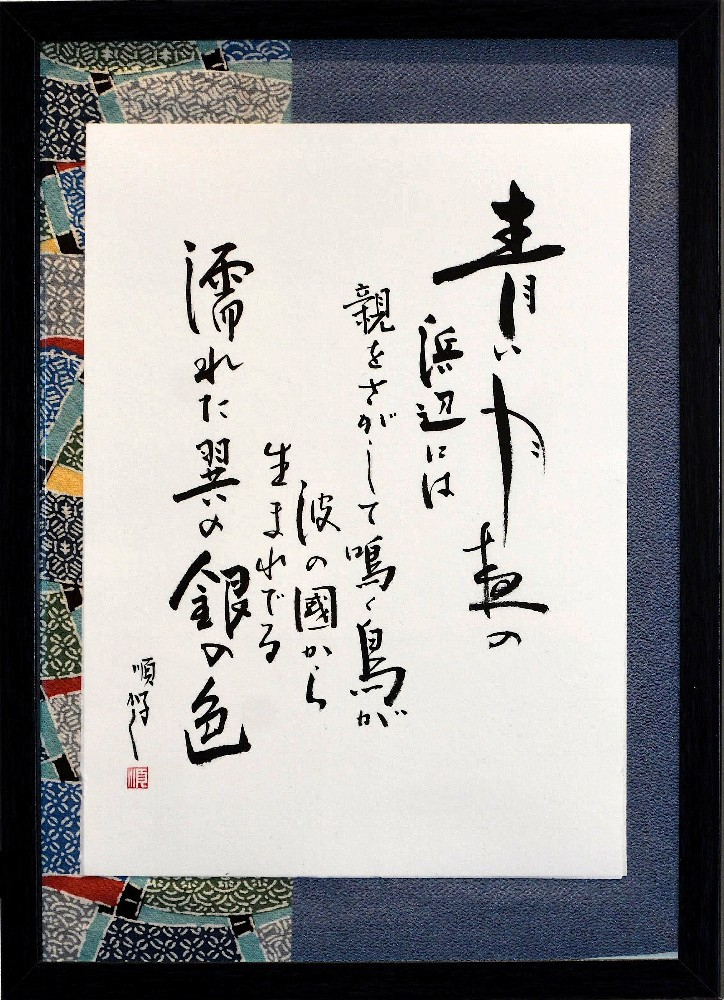 青い月夜の
浜辺には
親をさがして鳴く鳥が
波の國から
生まれでる
濡れた翼の銀の色
順
順